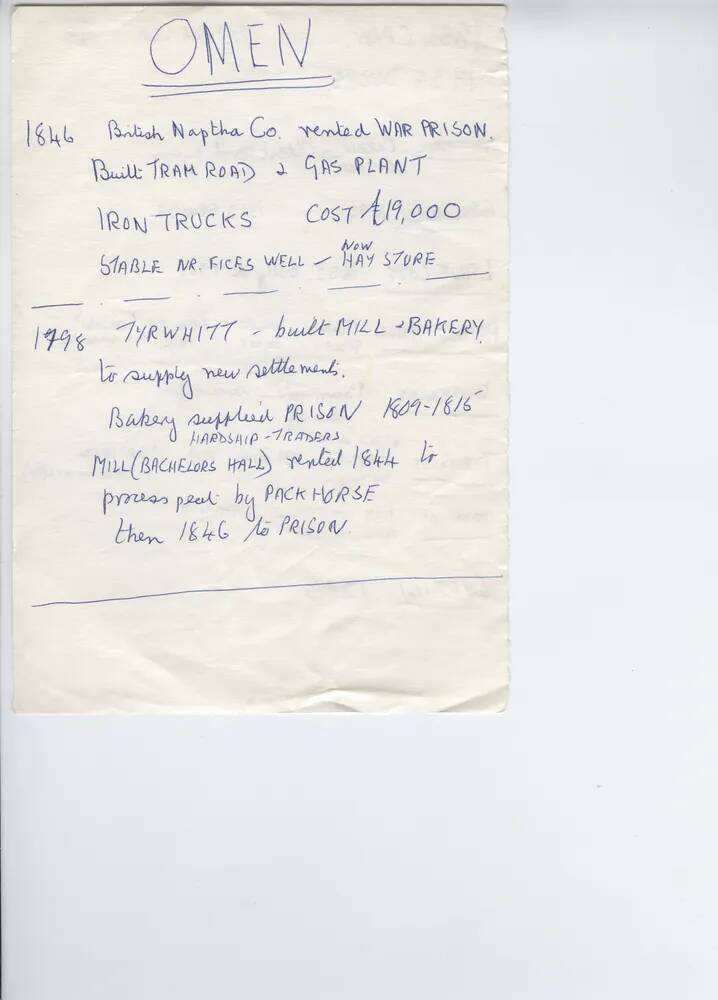 OMEN
1846 British Naptha Co. rented WAR PRISON.
Built TRAM ROAD & GAS PLANT
IRON TRUCKS COST £19,000
NOW
STABLE NR. FICES WELL – HAY STORE
1798 TYRWHITT – built MILL & BAKERY
to supply new settlements.
Bakery supplied PRISON 1809-1815
HARDSHIP - TRADERS
MILL (BACHELORS HALL) rented 1844 to
process peat by PACKHORSE
then 1846 to PRISON.